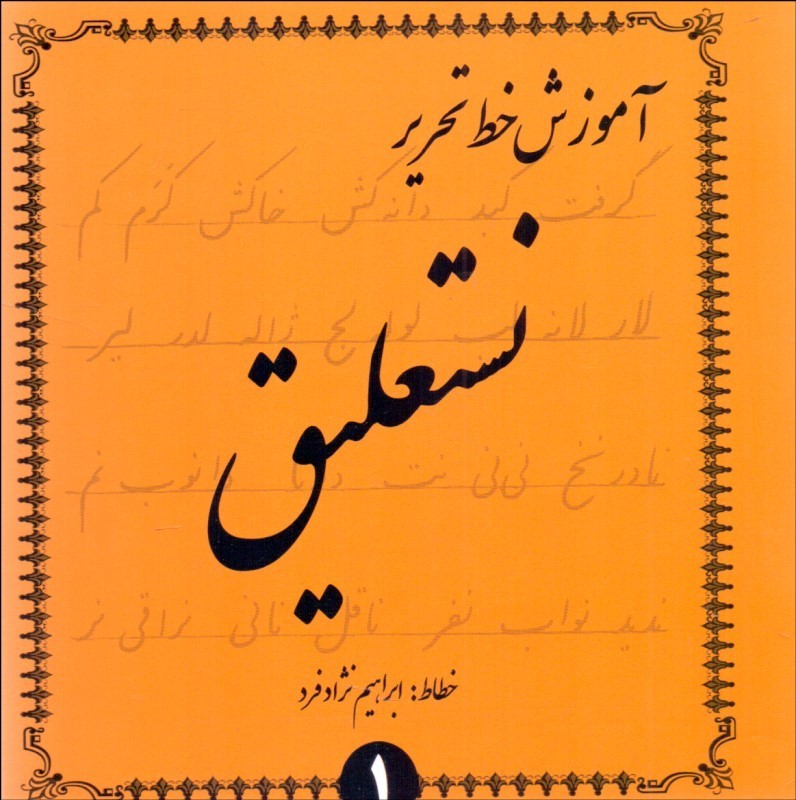 آموزش خط تحریر
گرفت کبد دانه کش خاکش کرم کم
نستعلیق
لار لانه لب لوا لج ژاله لدر لیر
نادر نخ نی‌نی نت دانا دانوب نم
ندید نواب نفر ناقل نانی نراقی نر
خطاط: ابراهیم نژادفرد
۱